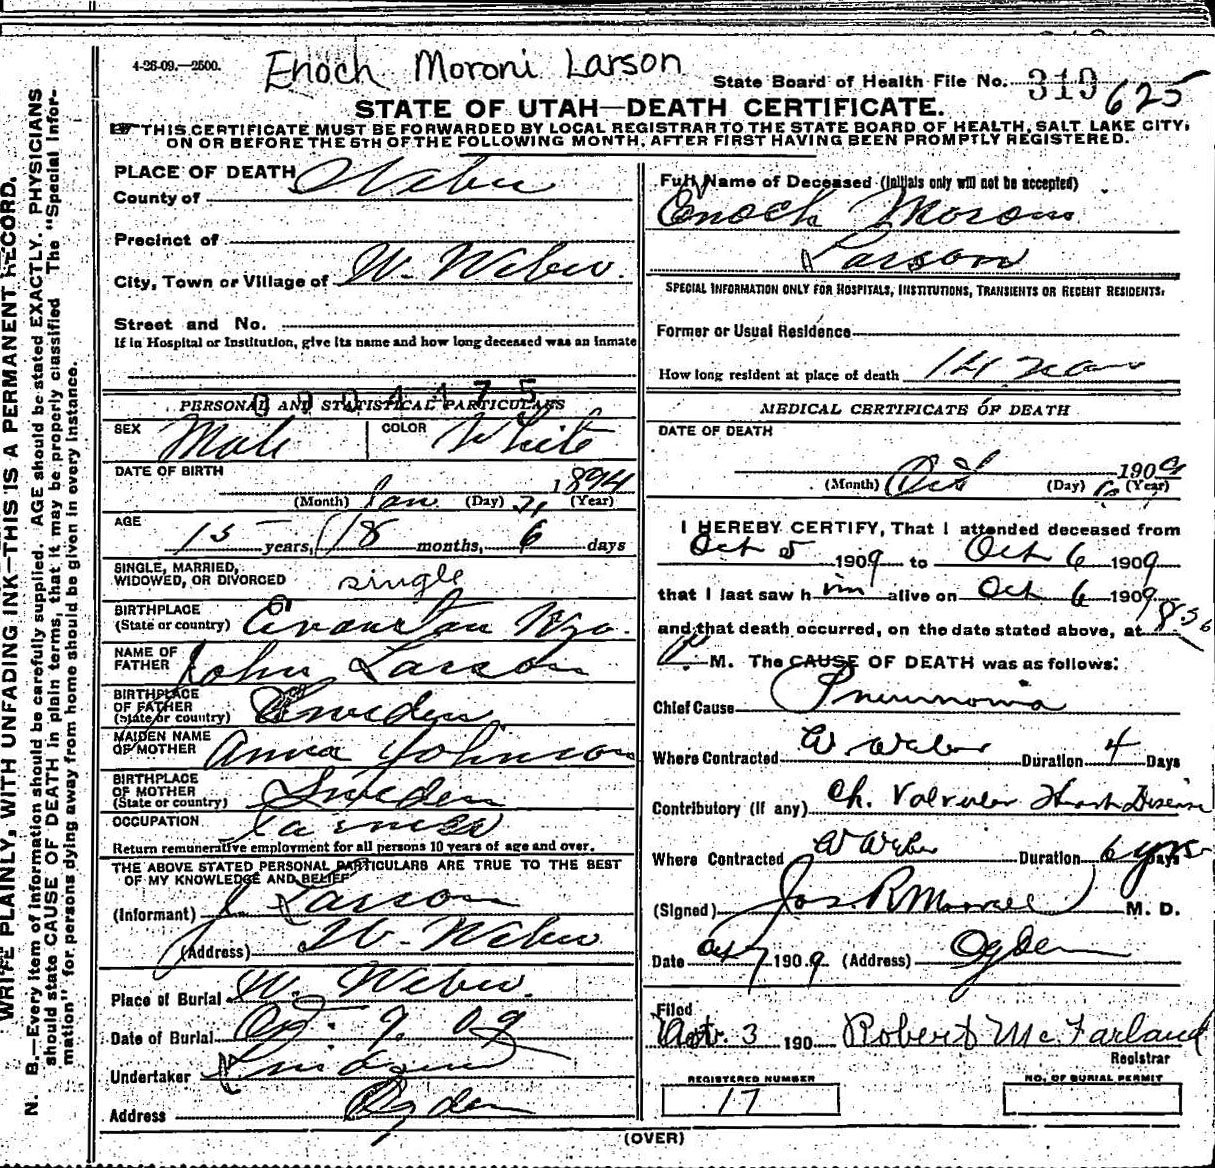 4-26-09.—2500.
Enoch Moroni Larson
State Board of Health File No. 319 625
STATE OF UTAH—DEATH CERTIFICATE.
THIS CERTIFICATE MUST BE FORWARDED BY LOCAL REGISTRAR TO THE STATE BOARD OF HEALTH, SALT LAKE CITY,
ON OR BEFORE THE 5TH OF THE FOLLOWING MONTH, AFTER FIRST HAVING BEEN PROMPTLY REGISTERED.
WRITE PLAINLY, WITH UNFADING INK—THIS IS A PERMANENT RECORD.
N. B.—Every item of information should be carefully supplied. AGE should be stated EXACTLY. PHYSICIANS
should state CAUSE OF DEATH in plain terms, that it may be properly classified. The "Special Infor-
mation" for persons dying away from home should be given in every instance.
PLACE OF DEATH
County of Weber
Precinct of
City, Town or Village of W. Weber.
Street and No.
If in Hospital or Institution, give its name and how long deceased was an inmate
PERSONAL AND STATISTICAL PARTICULARS
SEX Male COLOR White
DATE OF BIRTH
1894
(Month) Jan. (Day) 31 (Year)
AGE
15 years, 8 months, 6 days
SINGLE, MARRIED,
WIDOWED, OR DIVORCED single
BIRTHPLACE
(State or country) Evanston Wyo.
NAME OF
FATHER John Larson
BIRTHPLACE
OF FATHER
(State or country) Sweden
MAIDEN NAME
OF MOTHER Anna Johnson
BIRTHPLACE
OF MOTHER
(State or country) Sweden
OCCUPATION Farmer
Return remunerative employment for all persons 10 years of age and over.
THE ABOVE STATED PERSONAL PARTICULARS ARE TRUE TO THE BEST
OF MY KNOWLEDGE AND BELIEF
(Informant) J. Larson
(Address) W. Weber
Place of Burial W. Weber.
Date of Burial Oct. 9. 09
Undertaker
Address Ogden
Full Name of Deceased (Initials only will not be accepted)
Enoch Moroni
Larson
SPECIAL INFORMATION ONLY FOR HOSPITALS, INSTITUTIONS, TRANSIENTS OR RECENT RESIDENTS.
Former or Usual Residence
How long resident at place of death 14 years
MEDICAL CERTIFICATE OF DEATH
DATE OF DEATH
1909
(Month) Oct (Day) 6 (Year)
I HEREBY CERTIFY, That I attended deceased from
Oct 5 1909 to Oct 6 1909
that I last saw h im alive on Oct 6 1909
and that death occurred, on the date stated above, at 8:30
P. M. The CAUSE OF DEATH was as follows:
Chief Cause Pneumonia
Where Contracted W Weber Duration 4 Days
Contributory (if any) Ch. Valvular Heart Disease
Where Contracted W Weber Duration 6 yrs Days
(Signed) Jos R Morrell M. D.
Date Oct 7 1909 (Address) Ogden
Filed
Nov. 3 190 Robert McFarland
Registrar
REGISTERED NUMBER
17
NO. OF BURIAL PERMIT
(OVER)